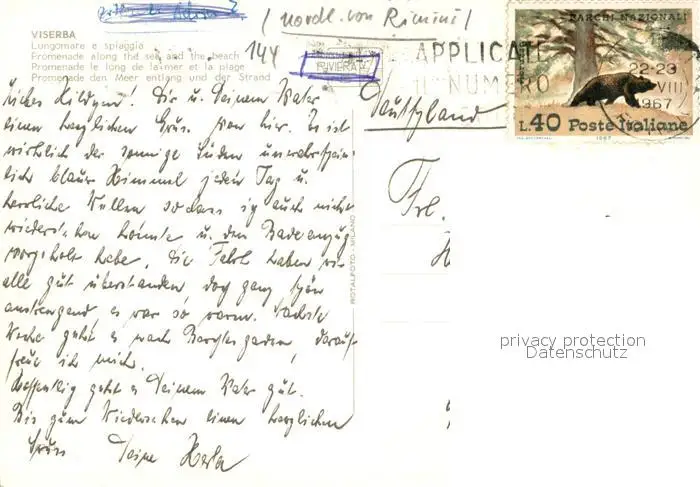 ( nördl. von Rimini )
VISERBA
Lungomare e spiaggia
Promenade along the sea and the beach
Promenade le long de la mer et la plage
Promenade den Meer entlang und der Strand
144
RIVIERA
APPLICATE
NUMERO
PARCHI NAZIONALI
22-23
VIII
1967
L.40 Poste Italiane
1967
Deutschland
Liebes Hildchen! Dir u. Deinem Vater
einen herzlichen Gruss von hier. Es ist
wirklich der sonnige Süden unwahrschein-
lich blauer Himmel jeden Tag u.
herrliche Wellen sodass ich auch nicht
wiederstehen konnte u. den Badeanzug
vorgeholt habe. Die Fahrt haben wir
alle gut überstanden doch ganz schön
anstrengend es war so warm. Nächste
Woche geht es nach Berchtesgaden darauf
freue ich mich.
Hoffentlich geht es Deinem Vater gut.
Bis zum Wiedersehen einen herzlichen
Gruss Deine Herta
Frl.
H
ROTALFOTO - MILANO
privacy protection
Datenschutz